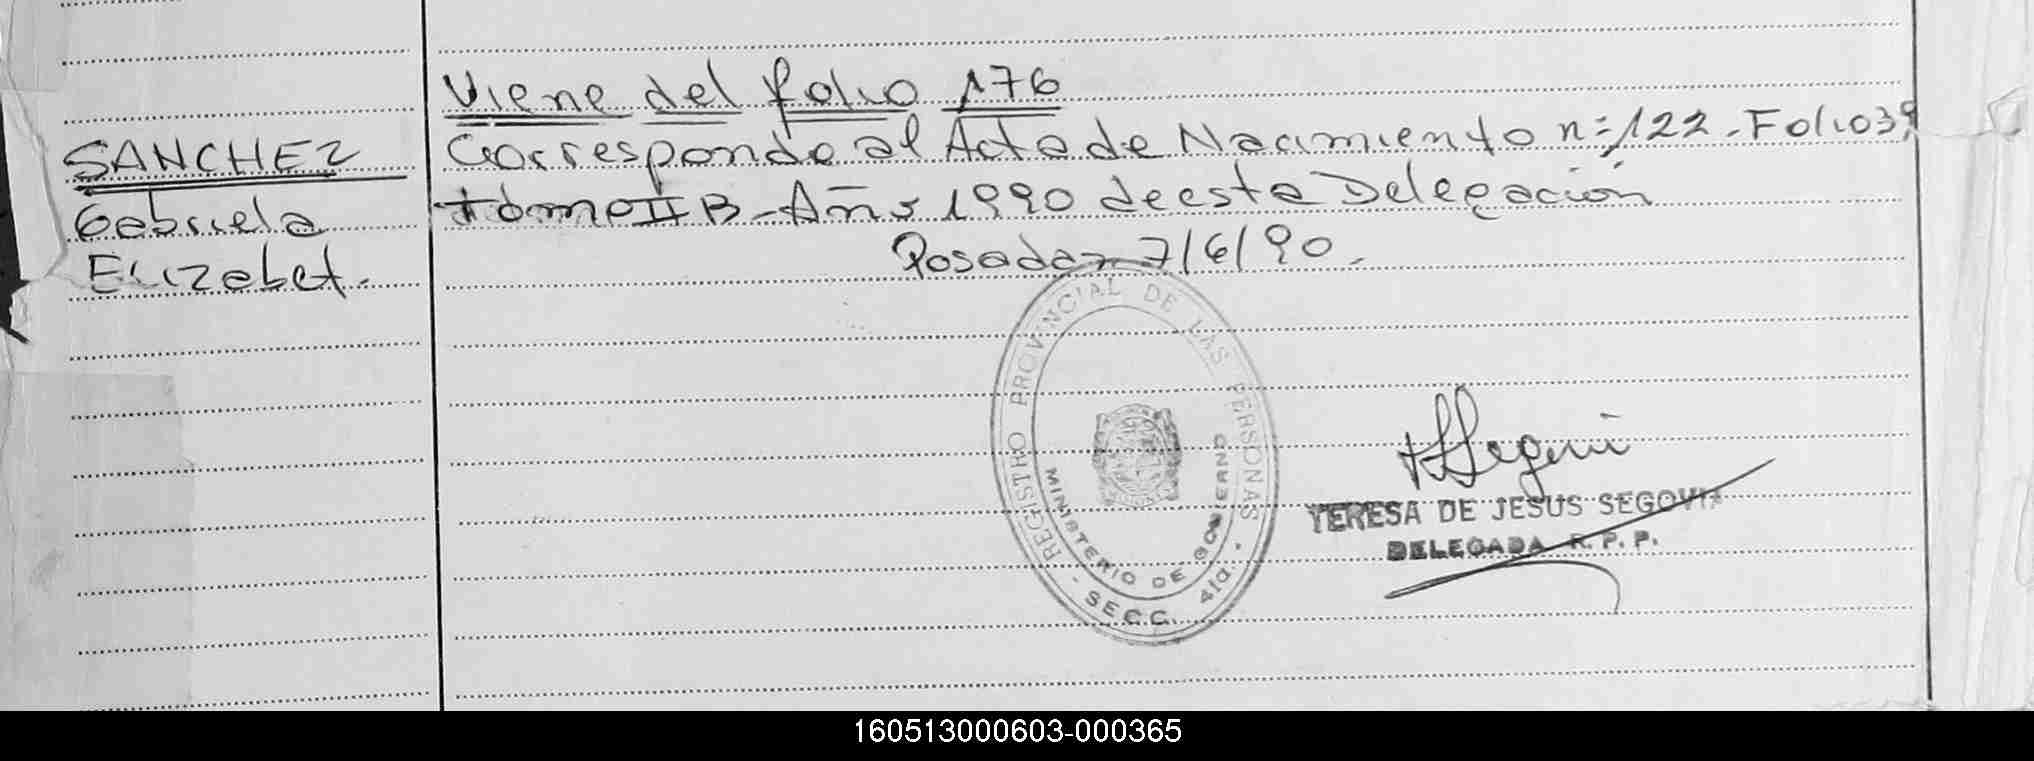 Viene del folio 176
SANCHEZ
Gabriela
Elizabet.
Corresponde al Acta de Nacimiento n=122. Folio 39
tomo II B - Año 1990 de esta Delegación
Posadas 7/6/90.
REGISTRO PROVINCIAL DE LAS PERSONAS
MINISTERIO DE GOBIERNO
SECC. 4ta.
TERESA DE JESUS SEGOVIA
DELEGADA R. P. P.
160513000603-000365